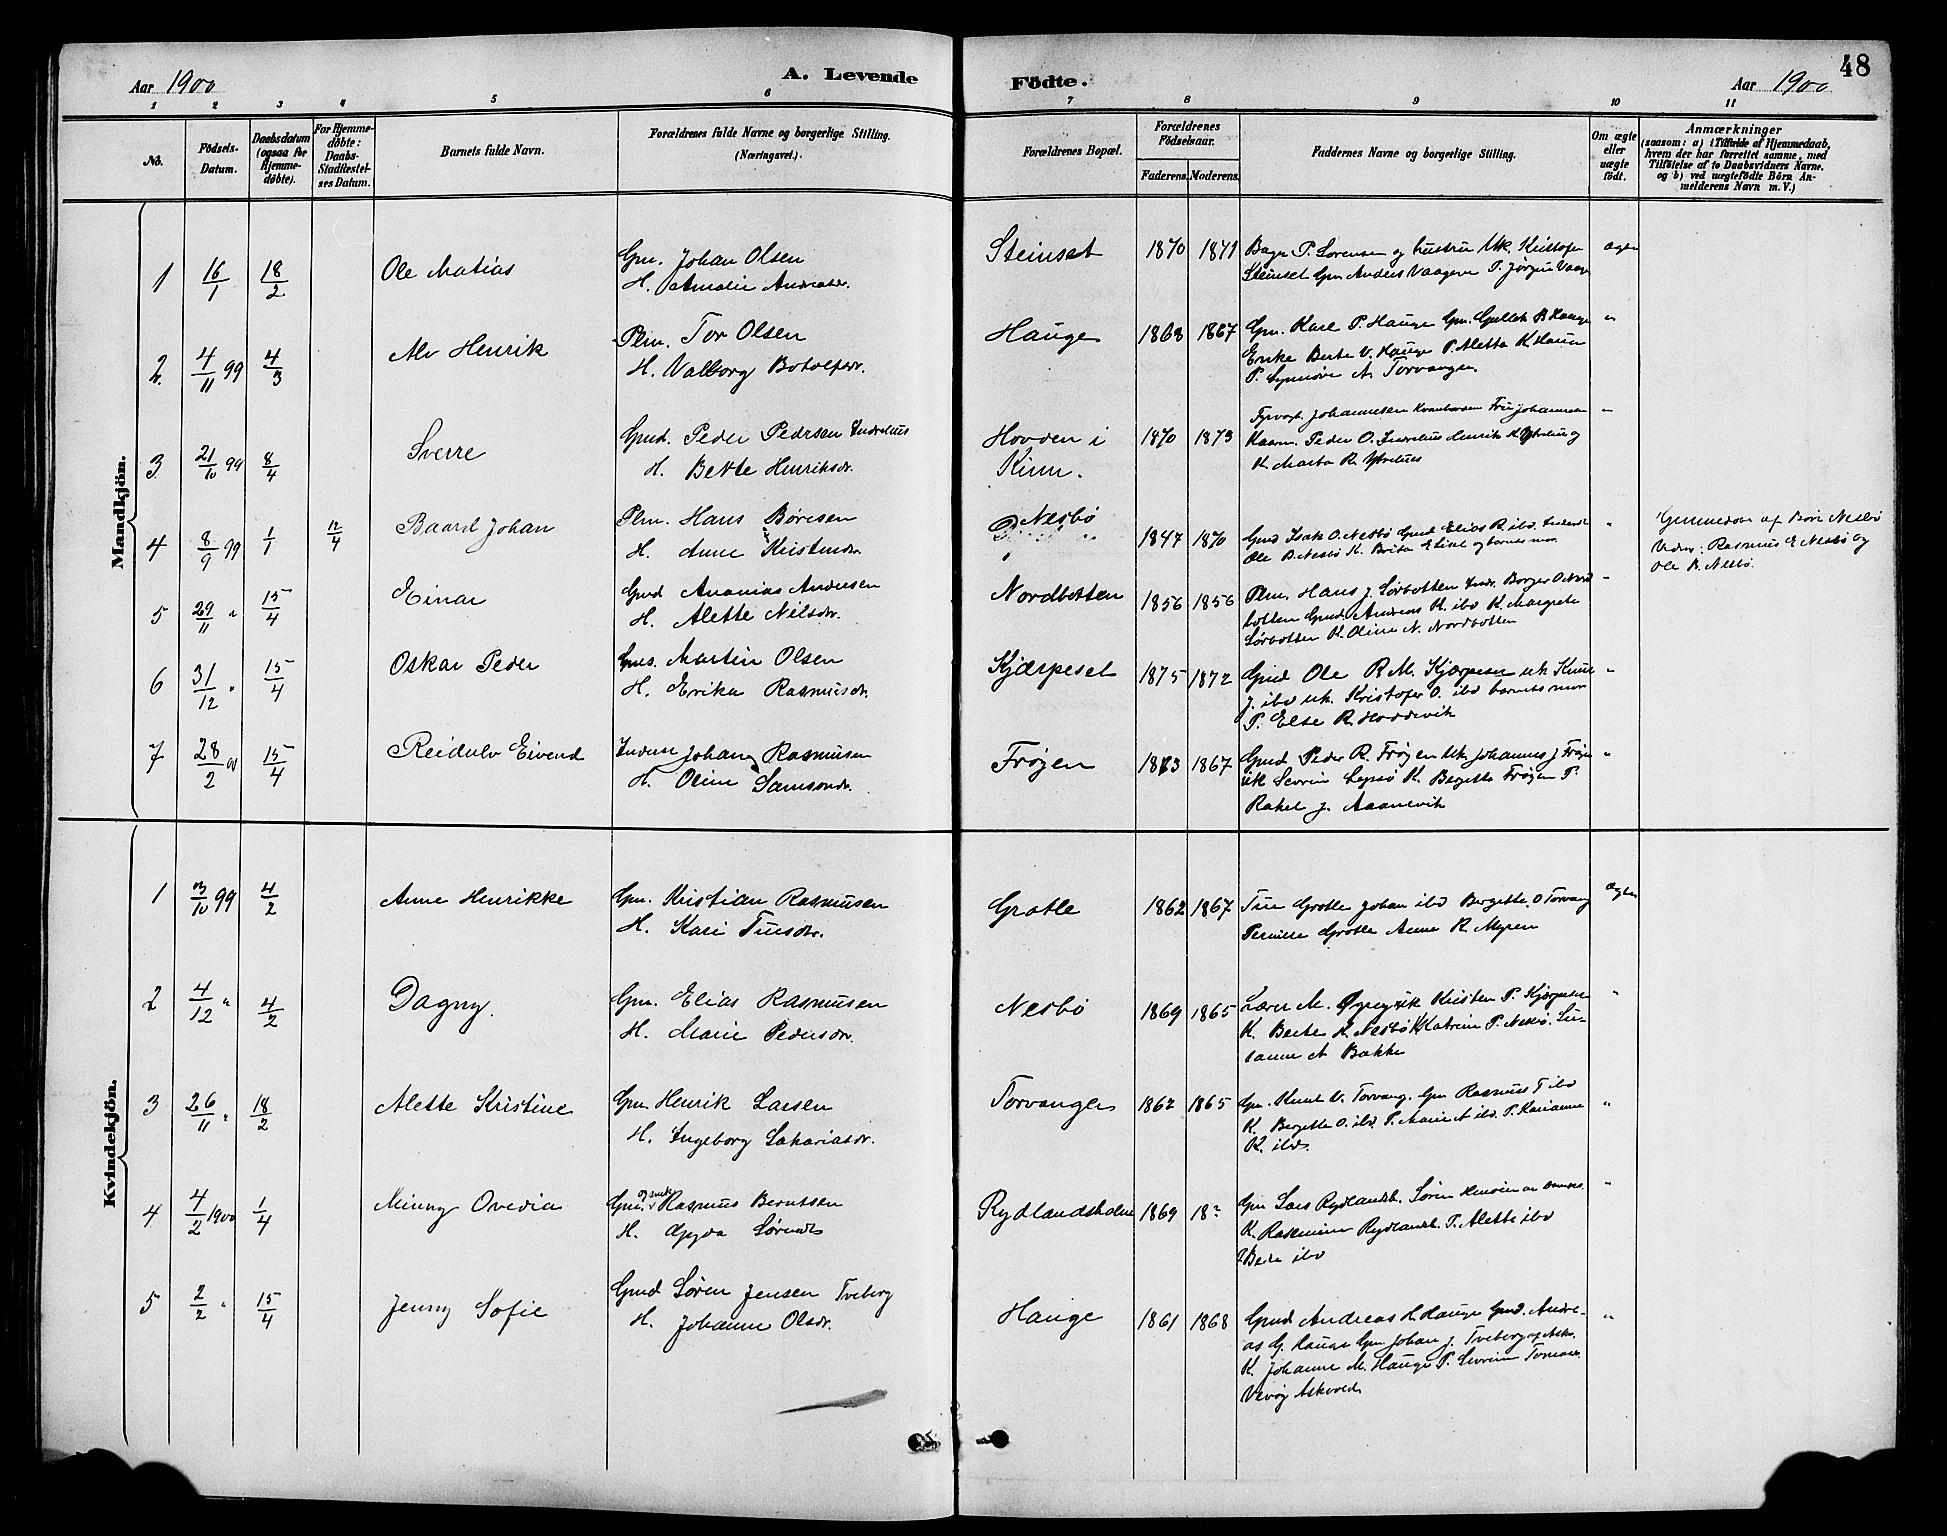 48
Aar 1900
A. Levende
Födte.
Aar 1900
1 2 3 4 5 6 7 8 9 10 11
No.
Födsels-Datum.
Daabsdatum (ogsaa for Hjemmedøbte).
For Hjemmedøbte: Daabs-Stadfæstelses Datum.
Barnets fulde Navn.
Forældrenes fulde Navne og borgerlige Stilling. (Næringsvei.)
Forældrenes Bopæl.
Forældrenes Födselsaar.
Faderens. Moderens.
Faddernes Navne og borgerlige Stilling.
Om ægte eller uægte født.
Anmærkninger
(saasom: a) i Tilfælde af Hjemmedaab,
hvem der har forrettet samme, med
Tilføielse af to Daabsvidners Navne.
og b) ved uægtefødte Börn An-
melderens Navn m. V.)
Mandkjön.
1 16/1 18/2 Ole Matias
Gm. Johan Olsen
H. Amalie Andreasdr.
Steinset 1870 1871
Steinset Gm Anders Vaagene P. Jørgine Vaage
ægte
2. 4/11 99 4/3 Alv Henrik
Plm. Tor Olsen
H. Valborg Botolfsdr.
Hauge 1868 1867
Gm. Karl P. Hauge Gm.
Enke Berte V. Hauge P. Aletta K. Hauge
P. Synnøve A. Torvanger.
"
3 21/10 99 8/4 Sverre
Gmd. Peder Pedersen Indrehus
H. Berte Henriksdr.
Hovden i
Kinn.
1870 1873
Fyrvogt. Johannesen
Peder O. Indrehus Henrik
K. Marta R. Ytrehus
"
4 8/9 99 1/1 12/4 Baard Johan
Plm. Hans Børesen
H. Anne Kristensdr.
Nesbø
1847 1870
Gmd Isak O. Nesbø Gmd Elias R. ibd.
Ole B. Nesbø K. Brita
og barnets mor
"
Hjemmedøbt af Børe Nesbø
Vidner: Rasmus E Nesbø og
Ole B. Nesbø.
5 29/11 " 15/4 Einar
Gmd Ananias Andersen
H. Alette Nilsdr.
Nordbotten 1856 1856
Plm. Hans J. Sørbotten Indr. Borger O Nord
botten Gmd. Andreas K. ibd K. Margrete
Sørbotten K. Oline N. Nordbotten
"
6 31/12 " 15/4 Oskar Peder
Gms. Martin Olsen
H. Erika Rasmusdr.
Kjærpeset 1875 1872
Gmd Ole R. M. Kjærpeset uk. Knut
J. ibd uk. Kristofer O. ibd barnets mor
P. Else R. Hoddevik
"
7 28/2 00 15/4 Reidulv Eivend
Inderst Johan Rasmusen
H. Oline Samsonsdr.
Frøyen 1873 1867
Gmd Peder R. Frøyen Uk. Johannes J Frøyen
uk Severin K. Begitte Frøyen P.
Rakel J. Aaanevik
"
Kvindekjön.
1 3/10 99 4/2 Anne Henrikke
Gm. Kristian Rasmusen
H. Kari Tuesdr.
Grotle 1862 1867
Tue Grotle Johan ibd Bergette. O Torvang
Pernille Grotle Anne R. Myren
ægte
2 4/12 " 4/2 Dagny.
Gm. Elias Rasmusen
H. Marie Pedersdr.
Nesbø 1869 1865
Lærer M. Kristen P. Kjærpeset
K. Berte R. Nesbø K Katrine P. Nesbø. Su-
sanne A Bakke
"
3 26/11 " 18/2 Alette Kristine
Gm Henrik Larsen
H. Ingeborg Sakariasdr.
Torvanger 1862 1865
Gm. Knut V. Torvang. Gm Rasmus T ibd
K. Bergette O. ibd. P. Marie A ibd. P. Karianne
K. ibd.
"
4 4/2 1900 1/4 Minny Ovedia
Gm. og snek. Rasmus Berntsen
H. Gyda Sørendr
Rydlandsholm 1869 18?
Gm Lars Rydlandsh. Søren
K. Rasmine Rydlandsh. P. Alette ibd
ibd
"
5 2/2 " 15/4 Jenny Sofie
Gmd Søren Jensen Tveberg
H. Johanne Olsdr.
Hauge 1861 1868
Gmd Andreas H Hauge Gmd. Andre-
as G. Hauge Gm Johan J. Tveberg af Ask.
K. Johanne M. Hauge P. Severine
Askvold
"